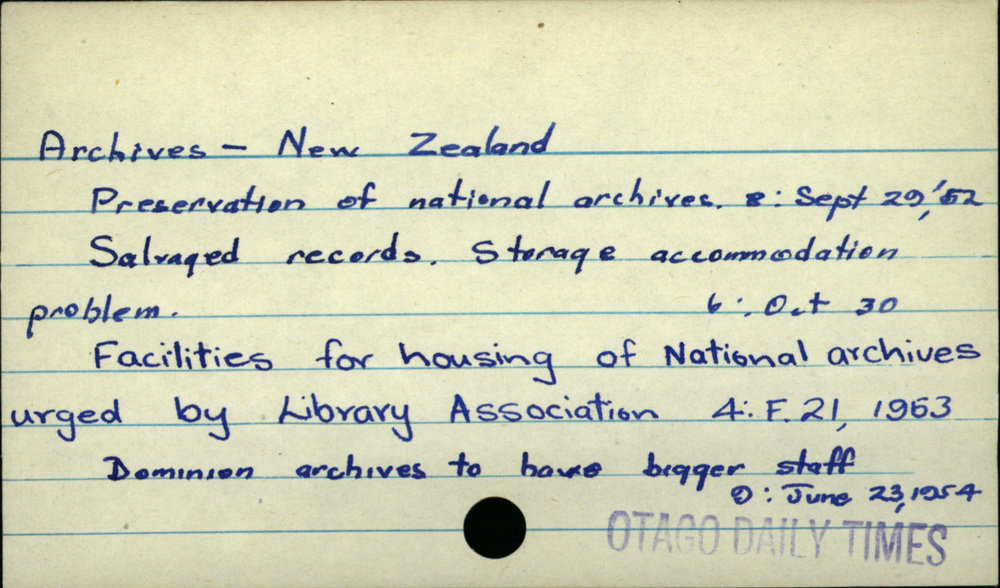 Archives - New Zealand
Preservation of national archives. 8: Sept 29, '52
Salvaged records. Storage accommodation
problem. 6: Oct 30
Facilities for housing of National archives
urged by Library Association 4: F. 21, 1953
Dominion archives to have bigger staff
9: June 23, 1954
OTAGO DAILY TIMES